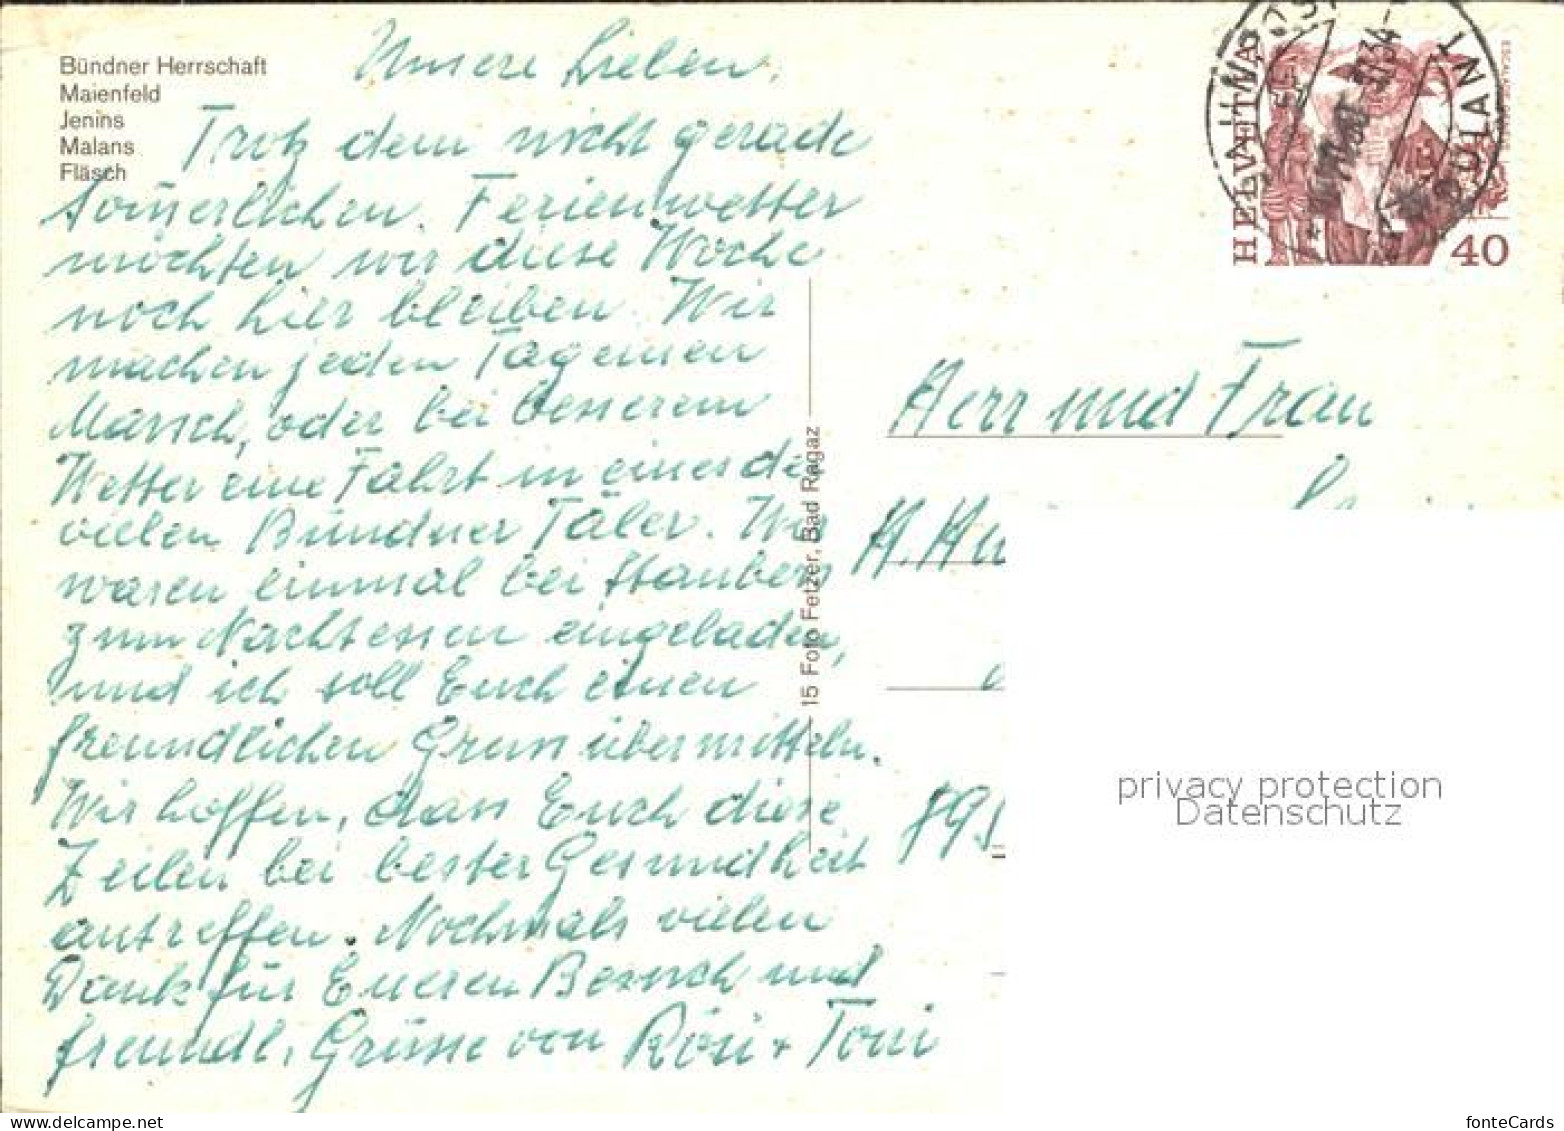 Bündner Herrschaft
Maienfeld
Jenins
Malans
Fläsch
Unsere Lieben,
Trotz dem nicht gerade
som̄erlichen Ferienwetter
möchten wir diese Woche
noch hier bleiben. Wir
machen jeden Tag einen
Marsch, oder bei besserem
Wetter eine Fahrt in eines der
vielen Bündner Täler. Wir
waren einmal bei Staubers
zum Nachtessen eingeladen,
und ich soll Euch einen
freundlichen Gruss übermitteln.
Wir hoffen, dass Euch diese
Zeilen bei bester Gesundheit
antreffen. Nochmals vielen
Dank für Eueren Besuch und
freundl. Grüsse von Rösi + Toni
15 Foto Fetzer, Bad Ragaz
HELVETIA
40
Herr und Frau
H. Hu
895
privacy protection
Datenschutz
fonteCards